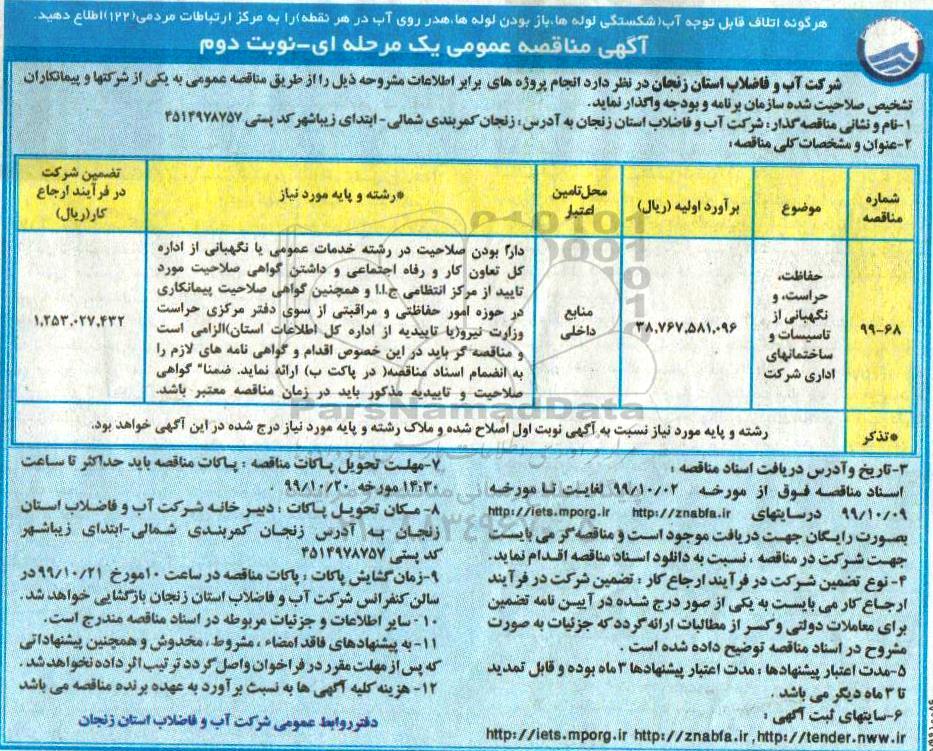 هرگونه اتلاف قابل توجه آب(شکستگی لوله ها،باز بودن لوله ها،هدر روی آب در هر نقطه)را به مرکز ارتباطات مردمی(۱۲۲)اطلاع دهید.
آگهی مناقصه عمومی یک مرحله ای-نوبت دوم
شرکت آب و فاضلاب استان زنجان در نظر دارد انجام پروژه های برابر اطلاعات مشروحه ذیل را از طریق مناقصه عمومی به یکی از شرکتها و پیمانکاران
تشخیص صلاحیت شده سازمان برنامه و بودجه واگذار نماید.
۱-نام و نشانی مناقصه گذار: شرکت آب و فاضلاب استان زنجان به آدرس: زنجان کمربندی شمالی- ابتدای زیباشهر کد پستی ۴۵۱۴۹۷۸۷۵۷
۲-عنوان و مشخصات کلی مناقصه:
شماره مناقصه
موضوع
برآورد اولیه (ریال)
محل تامین اعتبار
*رشته و پایه مورد نیاز
تضمین شرکت در فرآیند ارجاع کار(ریال)
۹۹-۶۸
حفاظت،
حراست، و
نگهبانی از
تاسیسات و
ساختمانهای
اداری شرکت
۳۸,۷۶۷,۵۸۱,۰۹۶
منابع داخلی
دارا بودن صلاحیت در رشته خدمات عمومی یا نگهبانی از اداره
کل تعاون کار و رفاه اجتماعی و داشتن گواهی صلاحیت مورد
تایید از مرکز انتظامی ج.ا.ا و همچنین گواهی صلاحیت پیمانکاری
در حوزه امور حفاظتی و مراقبتی از سوی دفتر مرکزی حراست
وزارت نیرو(یا تاییدیه از اداره کل اطلاعات استان)الزامی است
و مناقصه گر باید در این خصوص اقدام و گواهی نامه های لازم را
به انضمام اسناد مناقصه( در پاکت ب) ارائه نماید. ضمنا" گواهی
صلاحیت و تاییدیه مذکور باید در زمان مناقصه معتبر باشد.
۱,۲۵۳,۰۲۷,۴۳۲
*تذکر
رشته و پایه مورد نیاز نسبت به آگهی نوبت اول اصلاح شده و ملاک رشته و پایه مورد نیاز درج شده در این آگهی خواهد بود.
ParsNamadData
۳-تاریخ و آدرس دریافت اسناد مناقصه :
اسناد مناقصه فوق از مورخه ۹۹/۱۰/۰۲ لغایت تا مورخه
۹۹/۱۰/۰۹ در سایتهای http://iets.mporg.ir http://znabfa.ir
بصورت رایگان جهت دریافت موجود است و مناقصه گر می بایست
جهت شرکت در مناقصه ، نسبت به دانلود اسناد مناقصه اقدام نماید.
۴- نوع تضمین شرکت در فرآیند ارجاع کار : تضمین شرکت در فرآیند
ارجاع کار می بایست به یکی از صور درج شده در آیین نامه تضمین
برای معاملات دولتی و کسر از مطالبات ارائه گردد که جزئیات به صورت
مشروح در اسناد مناقصه توضیح داده شده است .
۵-مدت اعتبار پیشنهادها : مدت اعتبار پیشنهادها ۳ ماه بوده و قابل تمدید
تا ۳ ماه دیگر می باشد .
۶-سایتهای ثبت آگهی :
http://iets.mporg.ir http://znabfa.ir ,http://tender.nww.ir
۷-مهلت تحویل پاکات مناقصه : پاکات مناقصه باید حداکثر تا ساعت
۱۴:۳۰ مورخه ۹۹/۱۰/۲۰ .
۸- مکان تحویل پاکات : دبیر خانه شرکت آب و فاضلاب استان
زنجان به آدرس زنجان کمربندی شمالی-ابتدای زیباشهر
کد پستی ۴۵۱۴۹۷۸۷۵۷
۹-زمان گشایش پاکات : پاکات مناقصه در ساعت ۱۰ مورخ ۹۹/۱۰/۲۱ در
سالن کنفرانس شرکت آب و فاضلاب استان زنجان بازگشایی خواهد شد .
۱۰ - سایر اطلاعات و جزئیات مربوطه در اسناد مناقصه مندرج است.
۱۱- به پیشنهادهای فاقد امضاء ، مشروط ، مخدوش و همچنین پیشنهاداتی
که پس از مهلت مقرر در فراخوان واصل گردد ترتیب اثر داده نخواهد شد .
۱۲- هزینه کلیه آگهی ها به نسبت برآورد به عهده برنده مناقصه می باشد
دفتر روابط عمومی شرکت آب و فاضلاب استان زنجان